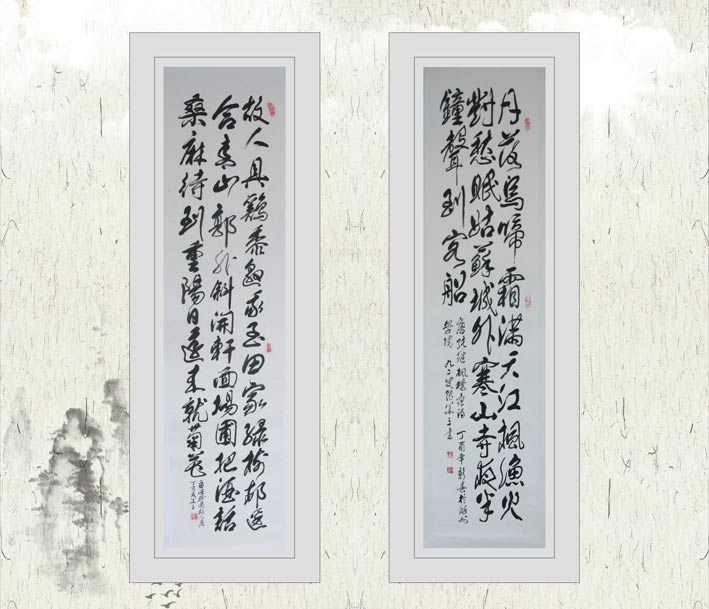 月落烏啼霜滿天江楓漁火
對愁眠姑蘇城外寒山寺夜半
鐘聲到客船
唐張繼楓橋夜泊 丁酉年新春於
故人具鷄黍邀我至田家綠樹邨邊
合青山郭外斜開軒面場圃把酒話
桑麻待到重陽日還來就菊花